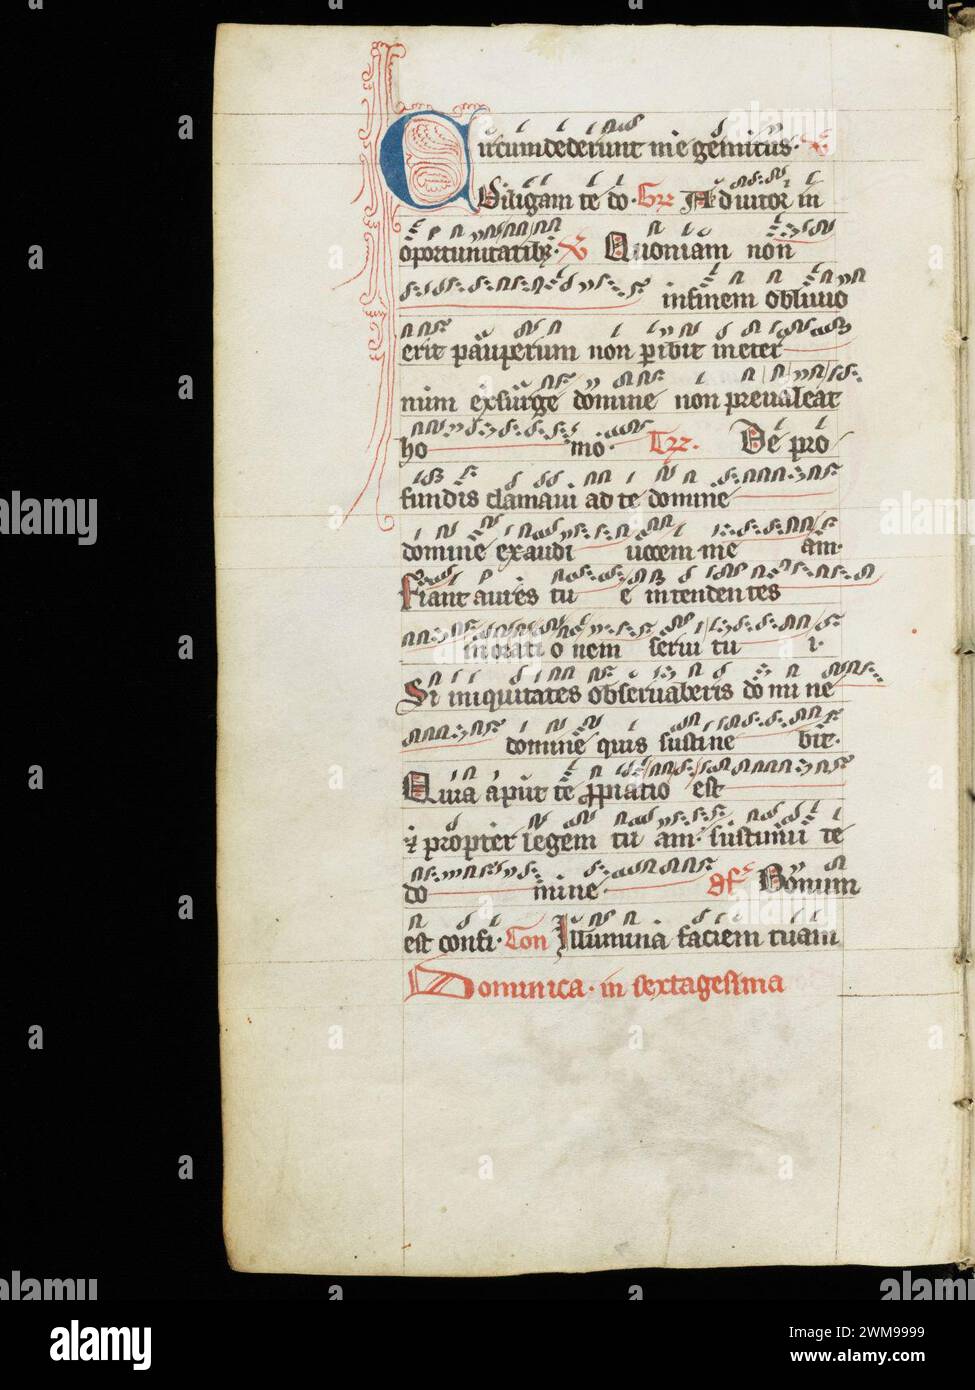 Circumdederunt me gemitus. V
Diligam te do. Gr Adiutor in
oportunitatibus. V Quoniam non
infinem obliuio
erit pauperum non peribit ineter
num exsurge domine non preualeat
ho mo. Tr. De pro
fundis clamaui ad te domine
domine exaudi uocem me am.
Fiant aures tu e intendentes
in orati o nem serui tu i.
Si iniquitates obseruaberis do mi ne
domine quis sustine bit.
Quia aput te propiatio est
et propter legem tu am. sustinui te
do mine. Off Bonum
est confi. Con Illumina faciem tuam
Dominica. in sextagesima
alamy
Image ID: 2WM9999
www.alamy.com